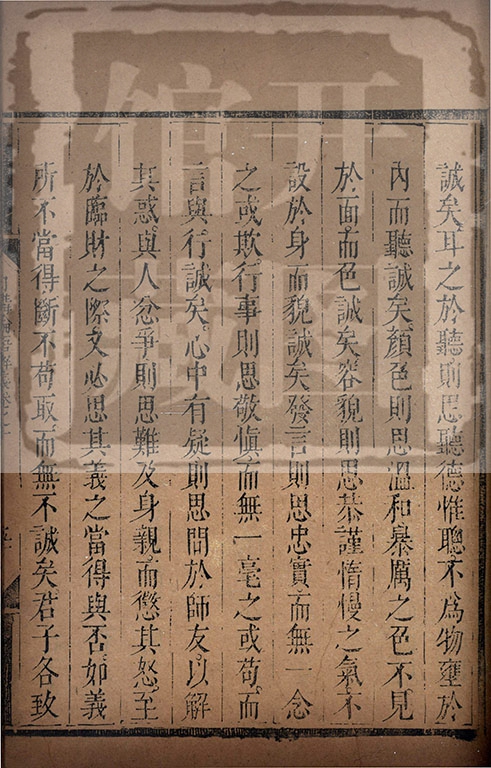 誠矣耳之於聽則思聽德惟聰不爲物壅於
內而聽誠矣顏色則思溫和暴厲之色不見
於面而色誠矣容貌則思恭謹惰慢之氣不
設於身而貌誠矣發言則思忠實而無一念
之或欺行事則思敬愼而無一毫之或苟而
言與行誠矣心中有疑則思問於師友以解
其惑與人忿爭則思難及身親而懲其怒至
於臨財之際又必思其義之當得與否如義
所不當得斷不苟取而無不誠矣君子各致